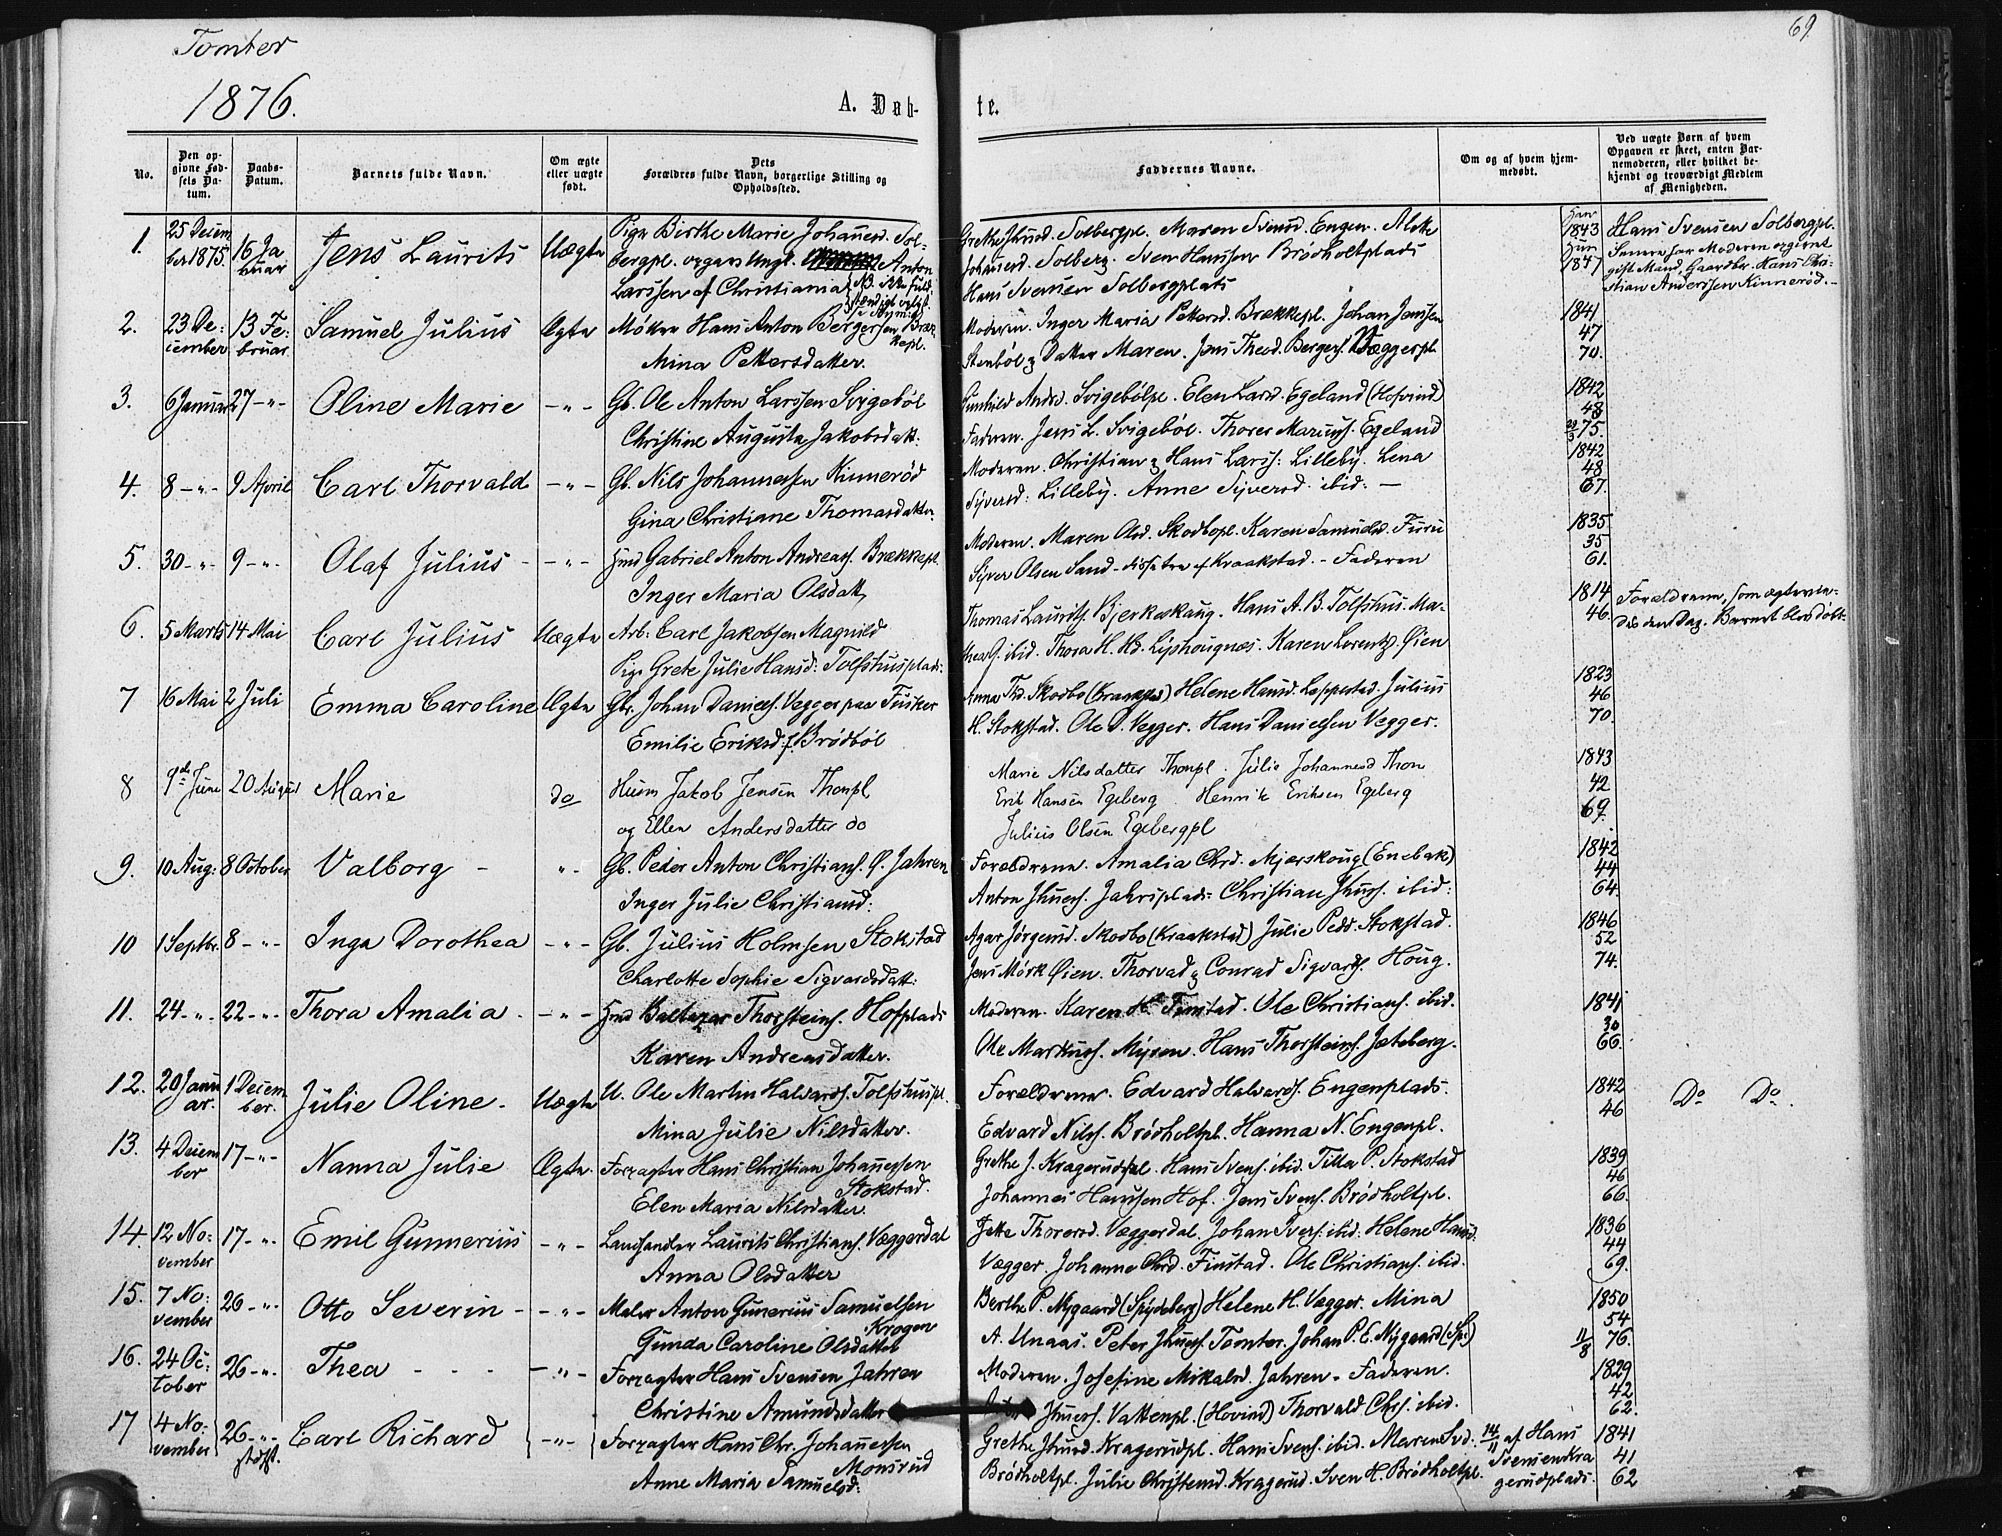 Tomter
69.
1876.
A. Døb-
te.
No.
Den op-
givne Fød-
sels Da-
tum.
Daabs-
Datum.
Barnets fulde Navn.
Om ægte
eller uægte
født.
Dets
Forældres fulde Navn, borgerlige Stilling og
Opholdssted.
Faddernes Navne.
Om og af hvem hjem-
medøbt.
Ved uægte Børn af hvem
Opgaven er skeet, enten Bar-
nemoderen, eller hvilket be-
kjendt og troværdigt Medlem
af Menigheden.
1. 25 Decem
ber 1875. 16 Ja
nuar Jens Laurits Uægte Pige Birthe Marie Johannesd. Sol-
bergpl. Anton
Larssen af Christiania
Solbergpl. Maren Svensd. Engen.
Johannesd. Solberg. Sven Hanssen Brödholtplads
Hans Svensen Solbergplads
1843
1847
Hans Svensen Solbergpl.
gift Mand, Gaardbr. Hans Chri-
stian Anderssen Kinneröd.
2. 23 De-
cember 13 Fe-
bruar. Samuel Julius Ægte Hans Anton Bergersen Bræk-
kepl.
Mina Pettersdatter.
Moderen. Inger Maria Pettersd. Brækkepl. Johan Janssen
Stenböl & Datter Maren. Jens Theod. Bergers. Væggerpl.
1841
47
70.
3. 6 Januar 27 -"- Oline Marie -"- Gb. Ole Anton Larssen Svigeböl
Christine Augusta Jakobsdatt:
Gunhild Andrd. Svigebölpl. Elen Larsd. Egeland (Hofvind)
Faderen. Jens L. Svigeböl. Thorer Mariuss. Egeland
1842
48
75.
4. 8 -"- 9 April Carl Thorvald -"- Gb. Nils Johannessen Kinneröd
Gina Christiane Thomasdatter.
Moderen. Christian & Hans Larss: Lilleby. Lena
Syversd: Lilleby. Anne Syversd. ibid: -
1842
48
67.
5. 30 -"- 9 -"- Olaf Julius -"- Hmd Gabriel Anton Andreass. Brækkepl.
Inger Maria Olsdatt,
Moderen. Maren Olsd. Skodbopl. Karen Samuelsd. Furu
Syver Olsen Sand - disse tre af Kraakstad. - Faderen
1835
35
61.
6. 5 Marts 14 Mai Carl Julius Uægte Arb: Carl Jakobsen Magnild
Pige Grete Julie Hansd: Tolfshusplads:
Thomas Laurits. Bjerkeskaug. Hans A. B. Tolfshus. Ma-
thea G. ibid. Thora H. Karen Lorentz. Öien
1814
46.
Forældrene, som ægtevie-
des den Dag, Barnet blev döbt.
7 16 Mai 2 Juli Emma Caroline Ægte Gbr. Johan Daniels. Vegger paa Fusker
Emilie Eriksd. f. Brödböl
Anna Skodbo (Kraakstad) Helene Hansd. Loppestad. Julius
H. Stokstad. Ole D. Vegger. Hans Danielsen Vegger.
1823
46
70.
8 9de Juni 20 August Marie do Huusm Jakob Jensen Thonpl
og Ellen Andersdatter do
Marie Nilsdatter Thonpl. Julie Johannesd Thon
Erik Hansen Egeberg Henrik Eriksen Egeberg
Julius Olsen Egebergpl
1843
42
69.
9. 10 Aug: 8 October Valborg - "- Gb. Peder Anton Christians. Ö. Jahren
Inger Julie Christiansd:
Forældrene. Amalia Chrd. Mjærskoug (Enebak)
Anton Jhness. Jahrsplads: Christian Jhness. ibid:
1842
44
64.
10 1 Septbr. 8 -"- Inga Dorothea -"- Gb. Julius Holmsen Stokstad
Charlotte Sophie Sigvardsdatt:
Agar Jörgensd. Skodbo (Kraakstad) Julie Peds. Stokstad.
Jens Mörk Öien. Thorvad & Conrad Sigvards. Houg.
1846
52
74.
11. 24 -"- 22 -"- Thora Amalia. -"- Hmd Baltazar Thorsteins. Hofplads
Karen Andreasdatter.
Moderen. Karen Finstad. Ole Christians. ibid.
Ole Markuss. Mysen. Hans Thorsteins. Jateberg.
1841
30
66.
12. 20 Janu
ar. 1 Decem
ber. Julie Oline. Uægte U. Ole Martin Halvards. Tolfshuspl.
Mina Julie Nilsdatter.
Forældrene. Edvard Halvards. Engenplads.
Edvard Nilss. Brödholtpl. Hanna N. Engenpl.
1842
46
Do Do.
13. 4 Decem
ber 17 -"- Nanna Julie Ægte. Forpagter Hans Christian Johannessen
Stokstad.
Elen Maria Nilsdatter.
Grethe J. Kragerudpl. Hans Svens. ibid. Tilla P. Stokstad
Johannes Hanssen Hof. Jens Svens. Brödholtpl.
1839
46
66.
14. 12 No-
vember 17 -"- Emil Gunnerius -"- Landhandler Laurits Christians. Væggerdal
Anna Olsdatter
Jette Thorersd. Væggerdal. Johan Ivers. ibid. Helene Hansd.
Vægger. Johanne Chrd. Finstad. Ole Christians. ibid.
1836
44
69.
15. 7 No-
vember 26 -"- Otto Severin - -"- Maler Anton Gunerius Samuelsen
Krogen
Gunda Caroline Olsdatter
Berthe P. Nygaard (Spydeberg) Helene H. Vægger. Mina
A. Unaas. Peter Jhness. Tomter. Johan P. E. Nygaard (Sp:)
1850
54
11/8 76.
16. 24 Oc-
tober 26 -"- Thea - - - -"- Forpagter Hans Svensen Jahren
Christine Amundsdatter
Moderen. Josefine Mikalsd. Jahren - Faderen.
Jhness. Vattenpl. (Hovind) Thorvald Chrs. ibid.
1829
42
62.
17 4 No-
vember 26 -"- Carl Richard -"- Forpagter Hans Chr. Johannessen
Monsrud
Anne Maria Samuelsd:
Grethe Jhnesd. Kragerudpl. Hans Svens. ibid. Maren Svd.
Brödholtpl. Julie Christensd. Kragerud. Sven H. Brödholtpl.
14/11 af Hans
Svensen Kra
gerudplads.
1841
41
62